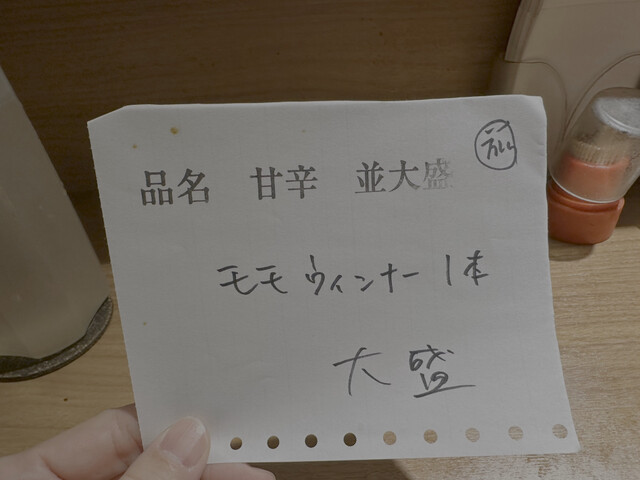 品名 甘辛 並大盛
モモウィンナー1本
大盛